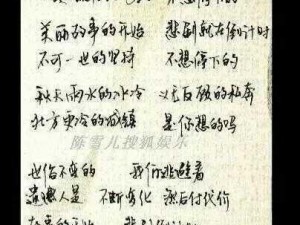 美丽故事的开始 悲剧就在倒计时
不可一世的坚持 不想停下的
秋天雨水的冰冷 义无反顾的私奔
北方更冷的城镇 是你想的吗
陈雪儿搜狐娱乐
也怕不变的 我们逃避着
遗憾人是 不断变化 然后付代价